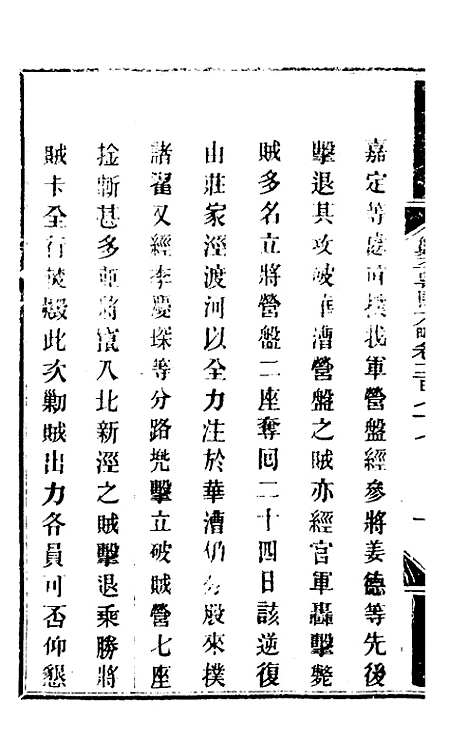 嘉定等處可撲我軍營盤經參將姜德等先後
擊退其攻破華漕營盤之賊亦經官軍轟擊斃
賊多名立將營盤二座奪回二十四日該逆復
由莊家涇渡河以全力注於華漕仍分股來撲
諸翟又經李慶琛等分路兜擊立破賊營七座
擒斬甚多並將竄入北新涇之賊擊退乘勝將
賊卡全行焚燬此次勦賊出力各員可否仰懇